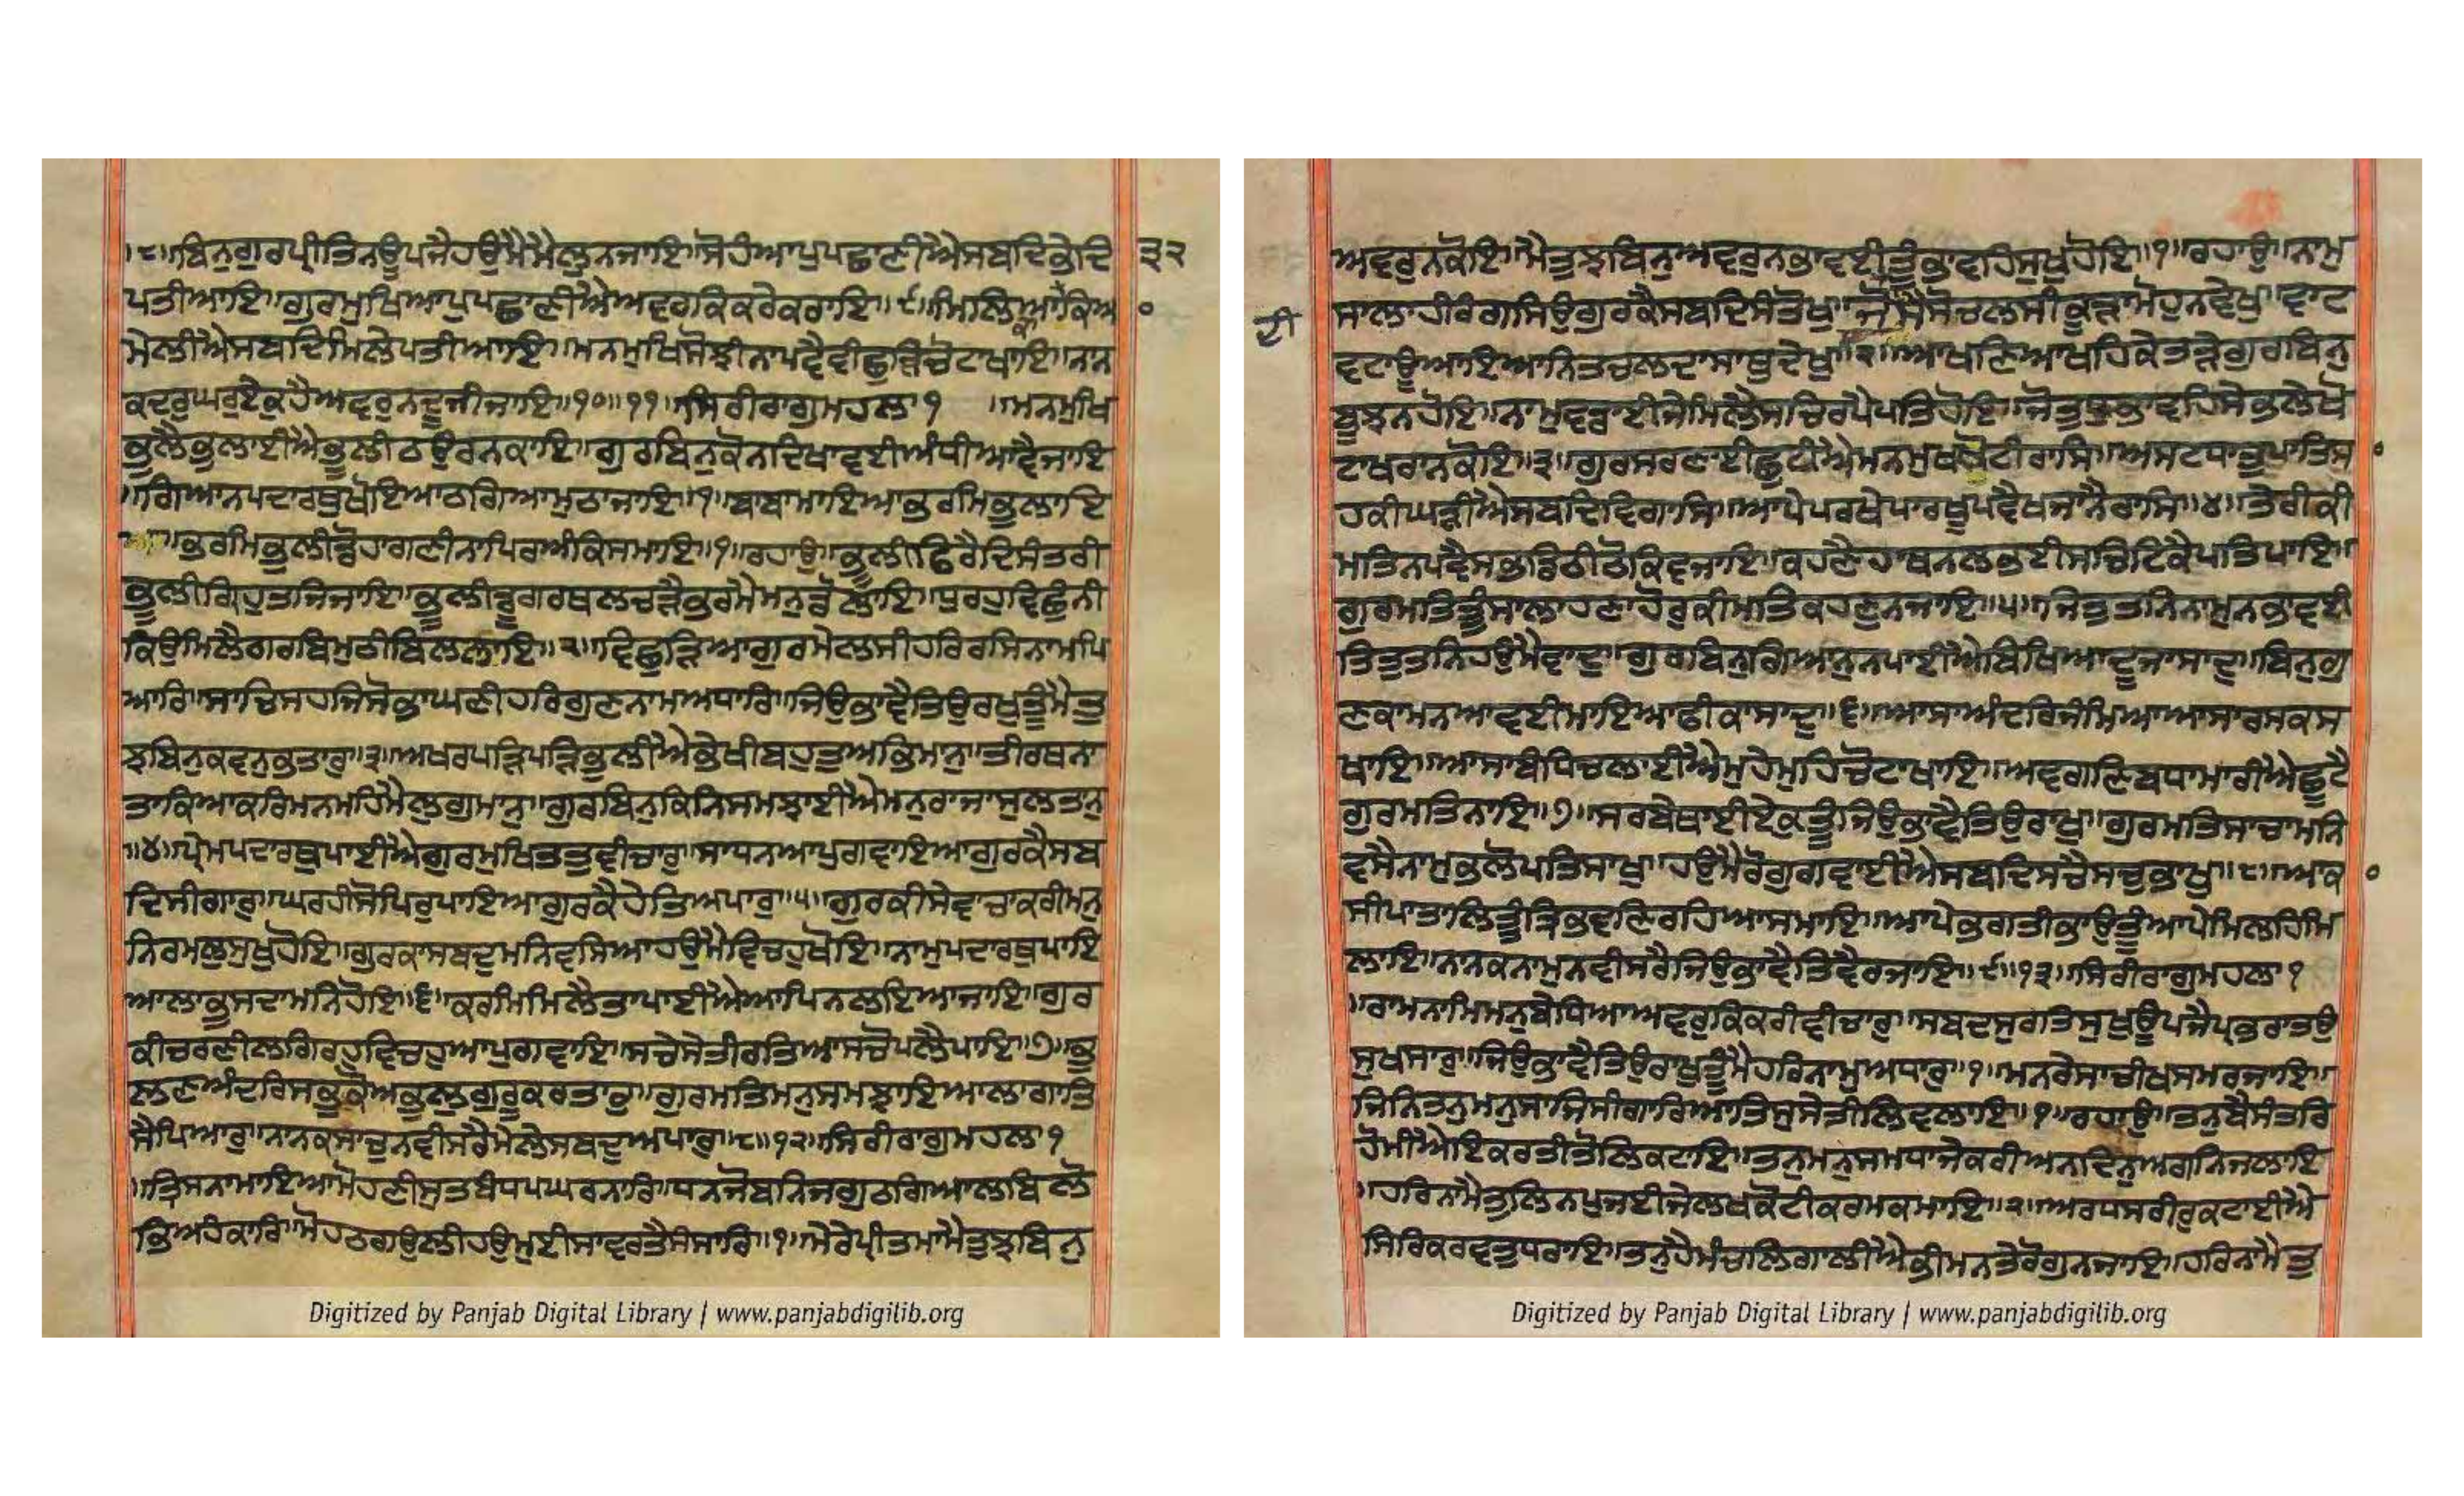 ।੮॥ਬਿਨੁਗੁਰਪ੍ਰੀਤਿਨਊਪਜੈਹਉਮੈਮੈਲੁਨਜਾਇ॥ਸੋਹੰਆਪੁਪਛਾਣੀਐਸਬਦਿਭੇਦਿ
੩੨
ਪਤੀਆਇ॥ਗੁਰਮੁਖਿਆਪੁਪਛਾਣੀਐਅਵਰਕਿਕਰੇਕਰਾਇ॥੯॥ਮਿਲਿਆਕਾਕਿਆ
ਮੇਲੀਐਸਬਦਿਮਿਲੇਪਤੀਆਇ॥ਮਨਮੁਖਿਸੋਝੀਨਾਪਵੈਵੀਛੁੜਿਚੋਟਾਖਾਇ॥ਨਾਨ
ਕਦਰੁਘਰੁਏਕੁਹੈਅਵਰੁਨਦੂਜੀਜਾਇ॥੧੦॥੧੧॥ਸਿਰੀਰਾਗੁਮਹਲਾ੧ ॥ਮਨਮੁਖਿ
ਭੁਲੈਭੁਲਾਈਐਭੂਲੀਠਉਰਨਕਾਇ॥ਗੁਰਬਿਨੁਕੋਨਦਿਖਾਵਈਅੰਧੀਆਵੈਜਾਇ
॥ਗਿਆਨਪਦਾਰਥੁਖੋਇਆਠਗਿਆਮੁਠਾਜਾਇ॥੧॥ਬਾਬਾਮਾਇਆਭਰਮਿਭੁਲਾਇ
॥ਭਰਮਿਭੁਲੀਡੋਹਾਗਣੀਨਾਪਿਰਅੰਕਿਸਮਾਇ॥੧॥ਰਹਾਉ॥ਭੂਲੀਫਿਰੈਦਿਸੰਤਰੀ
ਭੂਲੀਗ੍ਰਿਹੁਤਜਿਜਾਇ॥ਭੂਲੀਡੂੰਗਰਿਥਲਿਚੜੈਭਰਮੈਮਨੁਡੋਲਾਇ॥ਧੁਰਹੁਵਿਛੁੰਨੀ
ਕਿਉਮਿਲੈਗਰਬਿਮੁਠੀਬਿਲਲਾਇ॥੨॥ਵਿਛੁੜਿਆਗੁਰਮੇਲਸੀਹਰਿਰਸਿਨਾਮਪਿ
ਆਰਿ॥ਸਾਚਿਸਹਜਿਸੋਭਾਘਣੀਹਰਿਗੁਣਨਾਮਅਧਾਰਿ॥ਜਿਉਭਾਵੈਤਿਉਰਖੁਤੂੰਮੈਤੁ
ਝਬਿਨੁਕਵਨੁਭਤਾਰੁ॥੩॥ਅਖਰਪੜਿਪੜਿਭੁਲੀਐਭੇਖੀਬਹੁਤੁਅਭਿਮਾਨੁ॥ਤੀਰਥਨਾ
ਤਾਕਿਆਕਰੇਮਨਮਹਿਮੈਲੁਗੁਮਾਨੁ॥ਗੁਰਬਿਨੁਕਿਨਿਸਮਝਾਈਐਮਨੁਰਾਜਾਸੁਲਤਾਨੁ
॥੪॥ਪ੍ਰੇਮਪਦਾਰਥੁਪਾਈਐਗੁਰਮੁਖਿਤਤੁਵੀਚਾਰੁ॥ਸਾਧਨਆਪੁਗਵਾਇਆਗੁਰਕੈਸਬ
ਦਿਸੀਗਾਰੁ॥ਘਰਹੀਸੋਪਿਰੁਪਾਇਆਗੁਰਕੈਹੇਤਿਅਪਾਰੁ॥੫॥ਗੁਰਕੀਸੇਵਾਚਾਕਰੀਮਨੁ
ਨਿਰਮਲੁਸੁਖੁਹੋਇ॥ਗੁਰਕਾਸਬਦੁਮਨਿਵਸਿਆਹਉਮੈਵਿਚਹੁਖੋਇ॥ਨਾਮੁਪਦਾਰਥੁਪਾਇ
ਆਲਾਭੁਸਦਾਮਨਿਹੋਇ॥੬॥ਕਰਮਿਮਿਲੈਤਾਪਾਈਐਆਪਿਨਲਇਆਜਾਇ॥ਗੁਰ
ਕੀਚਰਣੀਲਗਿਰਹੁਵਿਚਹੁਆਪੁਗਵਾਇ॥ਸਚੇਸੇਤੀਰਤਿਆਸਚੋਪਲੈਪਾਇ॥੭॥ਭੁ
ਲਣਅੰਦਰਿਸਭੁਕੋਅਭੁਲੁਗੁਰੂਕਰਤਾਰੁ॥ਗੁਰਮਤਿਮਨੁਸਮਝਾਇਆਲਾਗਾਤਿ
ਸੈਪਿਆਰੁ॥ਨਾਨਕਸਾਚੁਨਵੀਸਰੈਮੇਲੇਸਬਦੁਅਪਾਰੁ॥੮॥੧੨॥ਸਿਰੀਰਾਗੁਮਹਲਾ੧
॥ਤ੍ਰਿਸਨਾਮਾਇਆਮੋਹਣੀਸੁਤਬੰਧਪਘਰਨਾਰਿ॥ਧਨਜੋਬਨਿਜਗੁਠਗਿਆਲਬਿਲੋ
ਭਿਅਹੰਕਾਰਿ॥ਮੋਹਠਗਉਲੀਹਉਮੁਈਸਾਵਰਤੈਸੰਸਾਰਿ॥੧॥ਮੇਰੇਪ੍ਰੀਤਮਾਮੈਤੁਝਬਿਨੁ
Digitized by Panjab Digital Library | www.panjabdigilib.org
ਅਵਰੁਨਕੋਇ॥ਮੈਤੁਝਬਿਨੁਅਵਰੁਨਭਾਵਈਤੂੰਭਾਵਹਿਸੁਖੁਹੋਇ॥੧॥ਰਹਾਉ॥ਨਾਮੁ
ਸਾਲਾਹੀਰੰਗਸਿਉਗੁਰਕੈਸਬਦਿਸੰਤੋਖੁ॥ਜੋਦੀਸੈਸੋਚਲਸੀਕੂੜਾਮੋਹੁਨਵੇਖੁ॥ਵਾਟ
ਦੀ
ਵਟਾਊਆਇਆਨਿਤਚਲਦਾਸਾਥੁਦੇਖੁ॥੨॥ਆਖਣਿਆਖਹਿਕੇਤੜੇਗੁਰਬਿਨੁ
ਬੂਝਨਹੋਇ॥ਨਾਮੁਵਡਾਈਜੇਮਿਲੈਸਚਿਰਪੈਪਤਿਹੋਇ॥ਜੋਤੁਧੁਭਾਵਹਿਸੇਭਲੇਖੋ
ਟਾਖਰਾਨਕੋਇ॥੩॥ਗੁਰਸਰਣਾਈਛੁਟੀਐਮਨਮੁਖਖੋਟੀਰਾਸਿ॥ਅਸਟਧਾਤੁਪਾਤਿਸਾ
ਹਕੀਘੜੀਐਸਬਦਿਵਿਗਾਸਿ॥ਆਪੇਪਰਖੇਪਾਰਖੂਪਵੈਖਜਾਨੈਰਾਸਿ॥੪॥ਤੇਰੀਕੀ
ਮਤਿਨਪਵੈਸਭਡਿਠੀਠੋਕਿਵਜਾਇ॥ਕਹਣੈਹਾਥਨਲਭਈਸਚਿਟਿਕੈਪਤਿਪਾਇ॥
ਗੁਰਮਤਿਤੂੰਸਾਲਾਹਣਾਹੋਰੁਕੀਮਤਿਕਹਣੁਨਜਾਇ॥੫॥ਜਿਤੁਤਨਿਨਾਮੁਨਭਾਵਈ
ਤਿਤੁਤਨਿਹਉਮੈਵਾਦੁ॥ਗੁਰਬਿਨੁਗਿਆਨੁਨਪਾਈਐਬਿਖਿਆਦੂਜਾਸਾਦੁ॥ਬਿਨੁਗੁ
ਣਕਾਮਨਆਵਈਮਾਇਆਫੀਕਾਸਾਦੁ॥੬॥ਆਸਾਅੰਦਰਿਜੰਮਿਆਆਸਾਰਸਕਸ
ਖਾਇ॥ਆਸਾਬੰਧਿਚਲਾਈਐਮੁਹੇਮੁਹਿਚੋਟਾਖਾਇ॥ਅਵਗਣਿਬਧਾਮਾਰੀਐਛੂਟੈ
ਗੁਰਮਤਿਨਾਇ॥੭॥ਸਰਬੇਥਾਈਏਕੁਤੂੰਜਿਉਭਾਵੈਤਿਉਰਾਖੁ॥ਗੁਰਮਤਿਸਾਚਾਮਨਿ
ਵਸੈਨਾਮੁਭਲੋਪਤਿਸਾਖੁ॥ਹਉਮੈਰੋਗੁਗਵਾਈਐਸਬਦਿਸਚੈਸਚੁਭਾਖੁ॥੮॥ਆਕਾ
ਸੀਪਾਤਾਲਿਤੂੰਤ੍ਰਿਭਵਣਿਰਹਿਆਸਮਾਇ॥ਆਪੇਭਗਤੀਭਾਉਤੂੰਆਪੇਮਿਲਹਿਮਿ
ਲਾਇ॥ਨਾਨਕਨਾਮੁਨਵੀਸਰੈਜਿਉਭਾਵੈਤਿਵੈਰਜਾਇ॥੯॥੧੩॥ਸਿਰੀਰਾਗੁਮਹਲਾ੧
॥ਰਾਮਨਾਮਿਮਨੁਬੇਧਿਆਅਵਰੁਕਿਕਰੀਵੀਚਾਰੁ॥ਸਬਦਸੁਰਤਿਸੁਖੁਊਪਜੈਪ੍ਰਭਰਾਤਉ
ਸੁਖਸਾਰੁ॥ਜਿਉਭਾਵੈਤਿਉਰਾਖੁਤੂੰਮੈਹਰਿਨਾਮੁਅਧਾਰੁ॥੧॥ਮਨਰੇਸਾਚੀਖਸਮਰਜਾਇ॥
ਜਿਨਿਤਨੁਮਨੁਸਾਜਿਸੀਗਾਰਿਆਤਿਸੁਸੇਤੀਲਿਵਲਾਇ॥੧॥ਰਹਾਉ॥ਤਨੁਬੈਸੰਤਰਿ
ਹੋਮੀਐਇਕਰਤੀਤੋਲਿਕਟਾਇ॥ਤਨੁਮਨੁਸਮਧਾਜੇਕਰੀਅਨਦਿਨੁਅਗਨਿਜਲਾਇ
॥ਹਰਿਨਾਮੈਤੁਲਿਨਪੁਜਈਜੇਲਖਕੋਟੀਕਰਮਕਮਾਇ॥੨॥ਅਰਧਸਰੀਰੁਕਟਾਈਐ
ਸਿਰਿਕਰਵਤੁਧਰਾਇ॥ਤਨੁਹੈਮੰਚਲਿਗਾਲੀਐਭੀਮਨਤੇਰੋਗੁਨਜਾਇ॥ਹਰਿਨਾਮੈਤੁ
Digitized by Panjab Digital Library | www.panjabdigilib.org